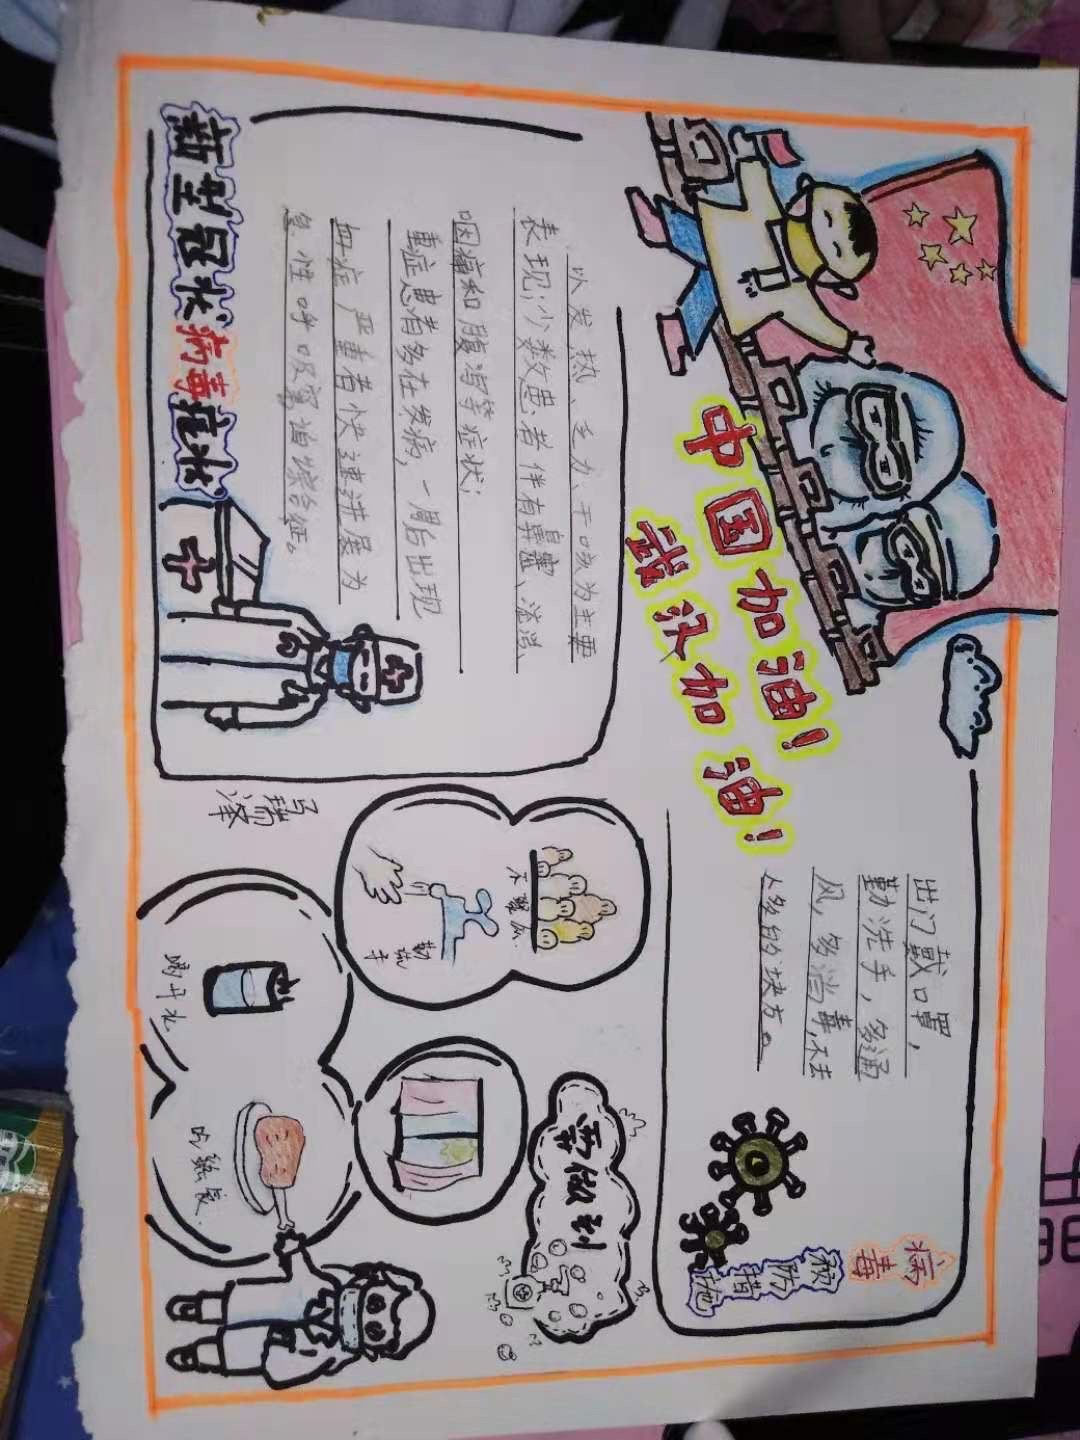 中国加油！
武汉加油！
出门戴口罩，
勤洗手，多通
风，多消毒，不去
人多的块方。
病毒
预防措施
新型冠状病毒症状
以发热、乏力、干咳为主要
表现，少数患者伴有鼻塞、流涕、
咽痛和腹泻等症状；
重症患者多在发病，一周后出现
血症 严重者快速进展为
急性呼吸窘迫综合征。
勤洗手
喝开水
需做到